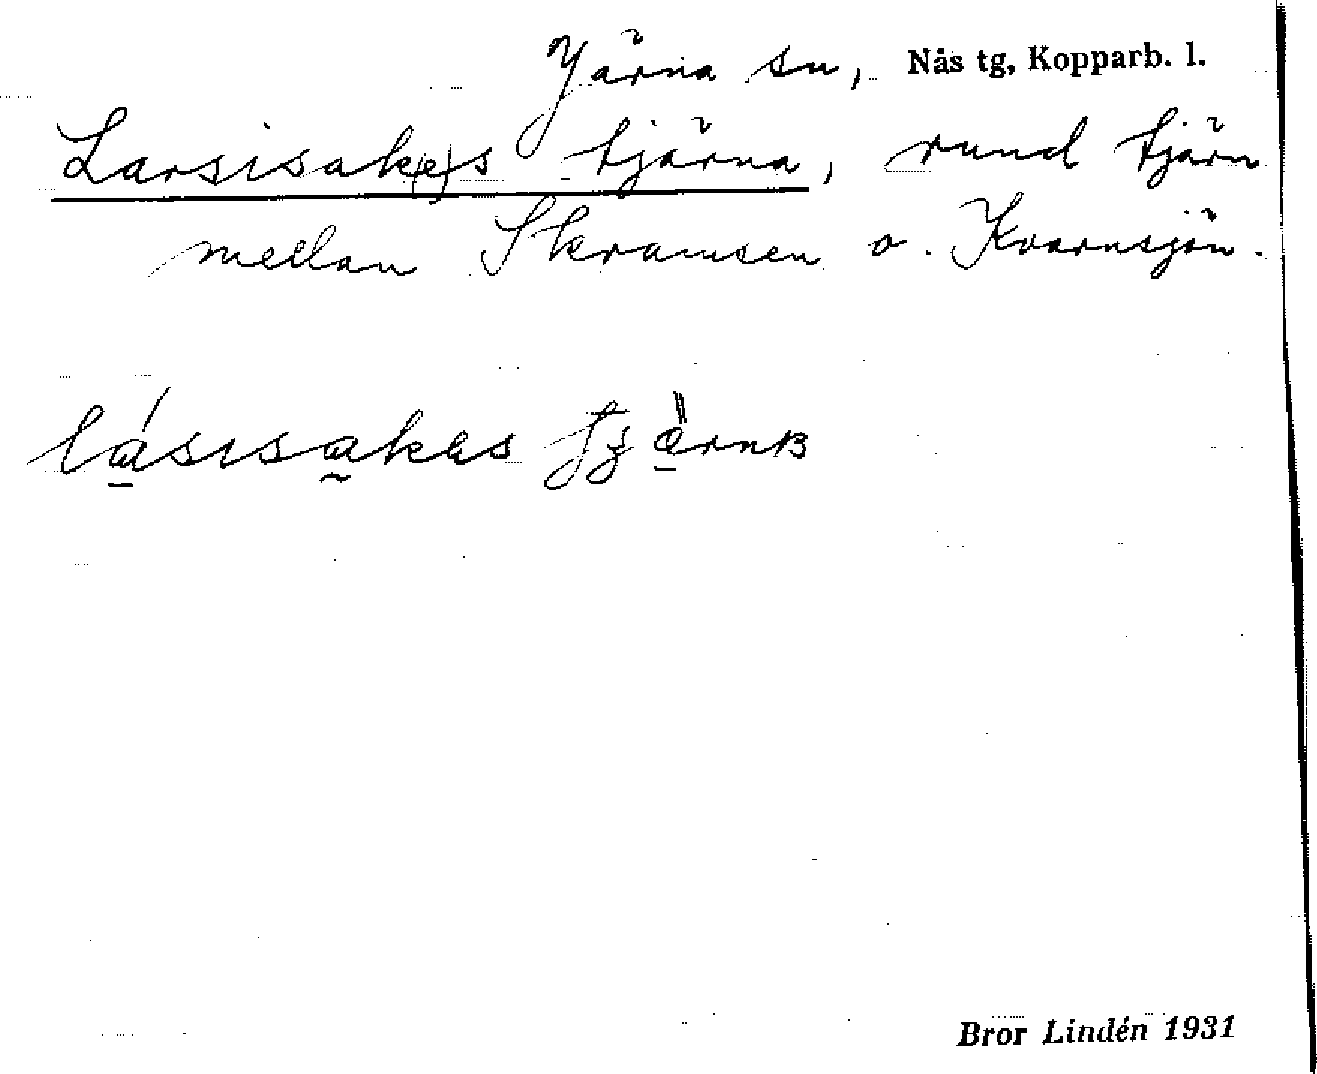 Järna sn, Nås tg, Kopparb. l.
Larsisak(e)s tjärna, rund tjärn
mellan Skramsen o. Kvarnsjön.
Bror Lindén 1931